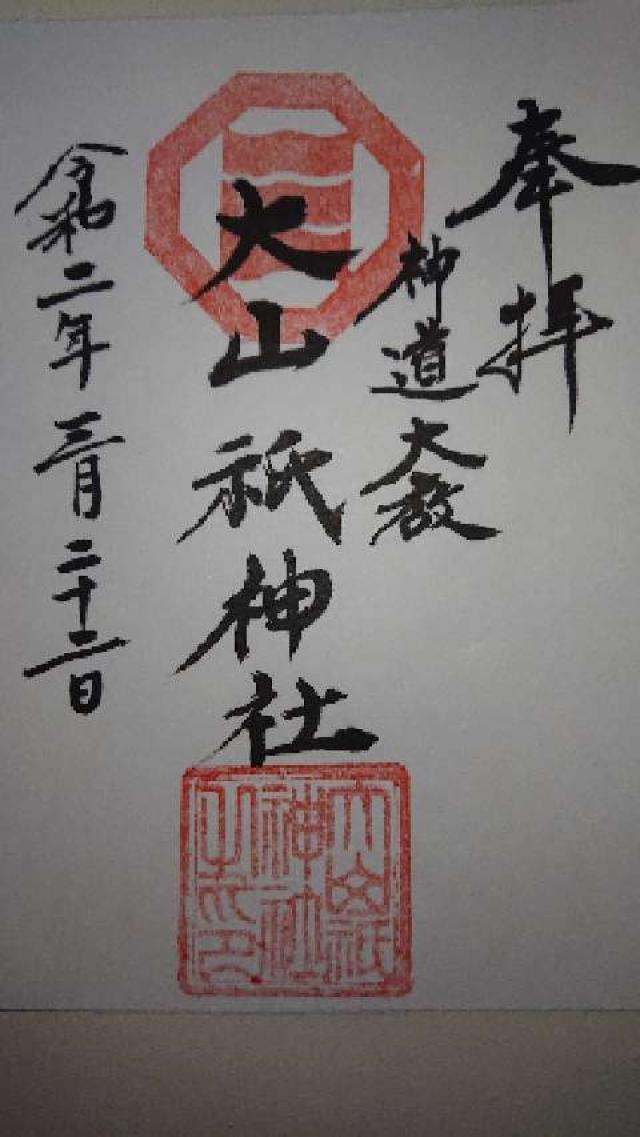 奉拝
神道大教
大山祇神社
令和二年三月二十二日
大山祇
神社
之印